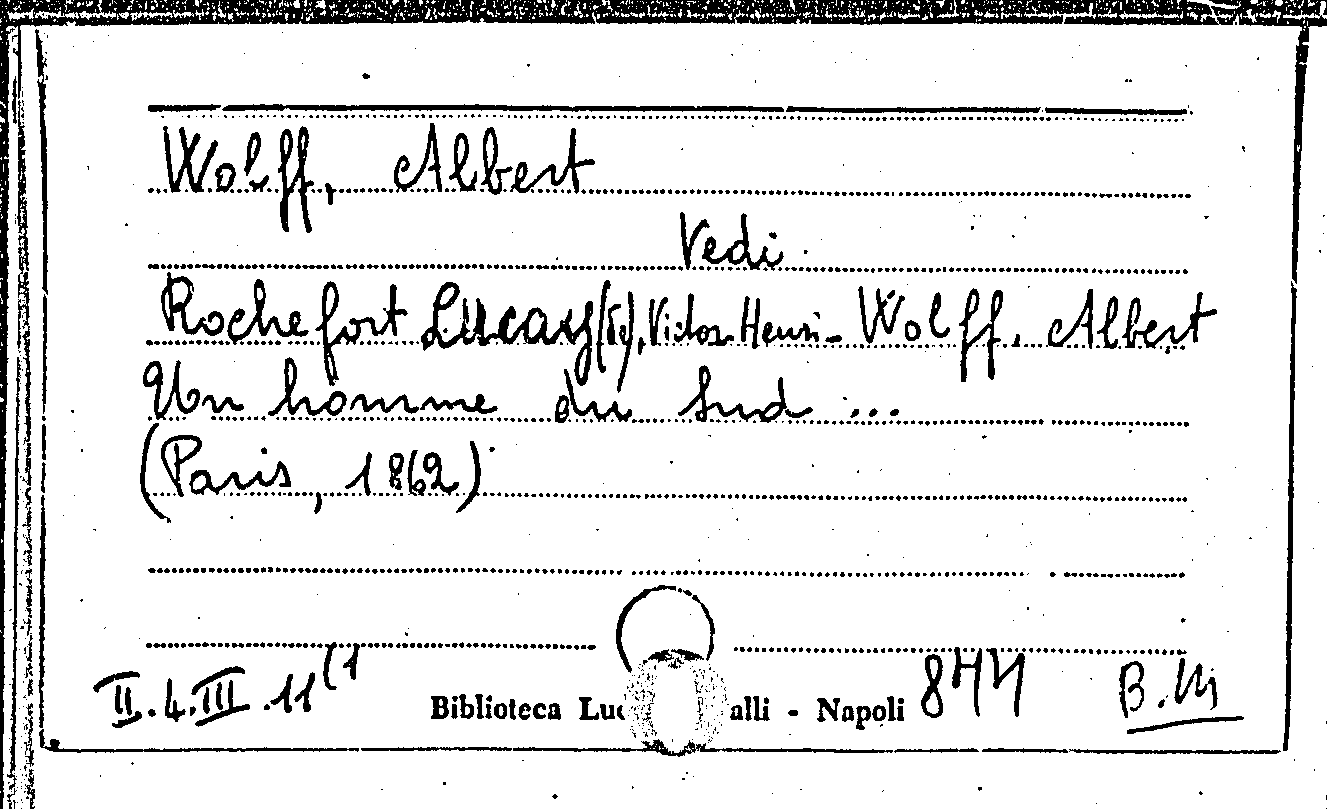 Wolff, Albert
Vedi
Rochefort Lucay (de), Victor Henri - Wolff, Albert
Un homme du Sud ...
(Paris, 1862)
II.4.III.11(1
Biblioteca Luc alli - Napoli
B.M